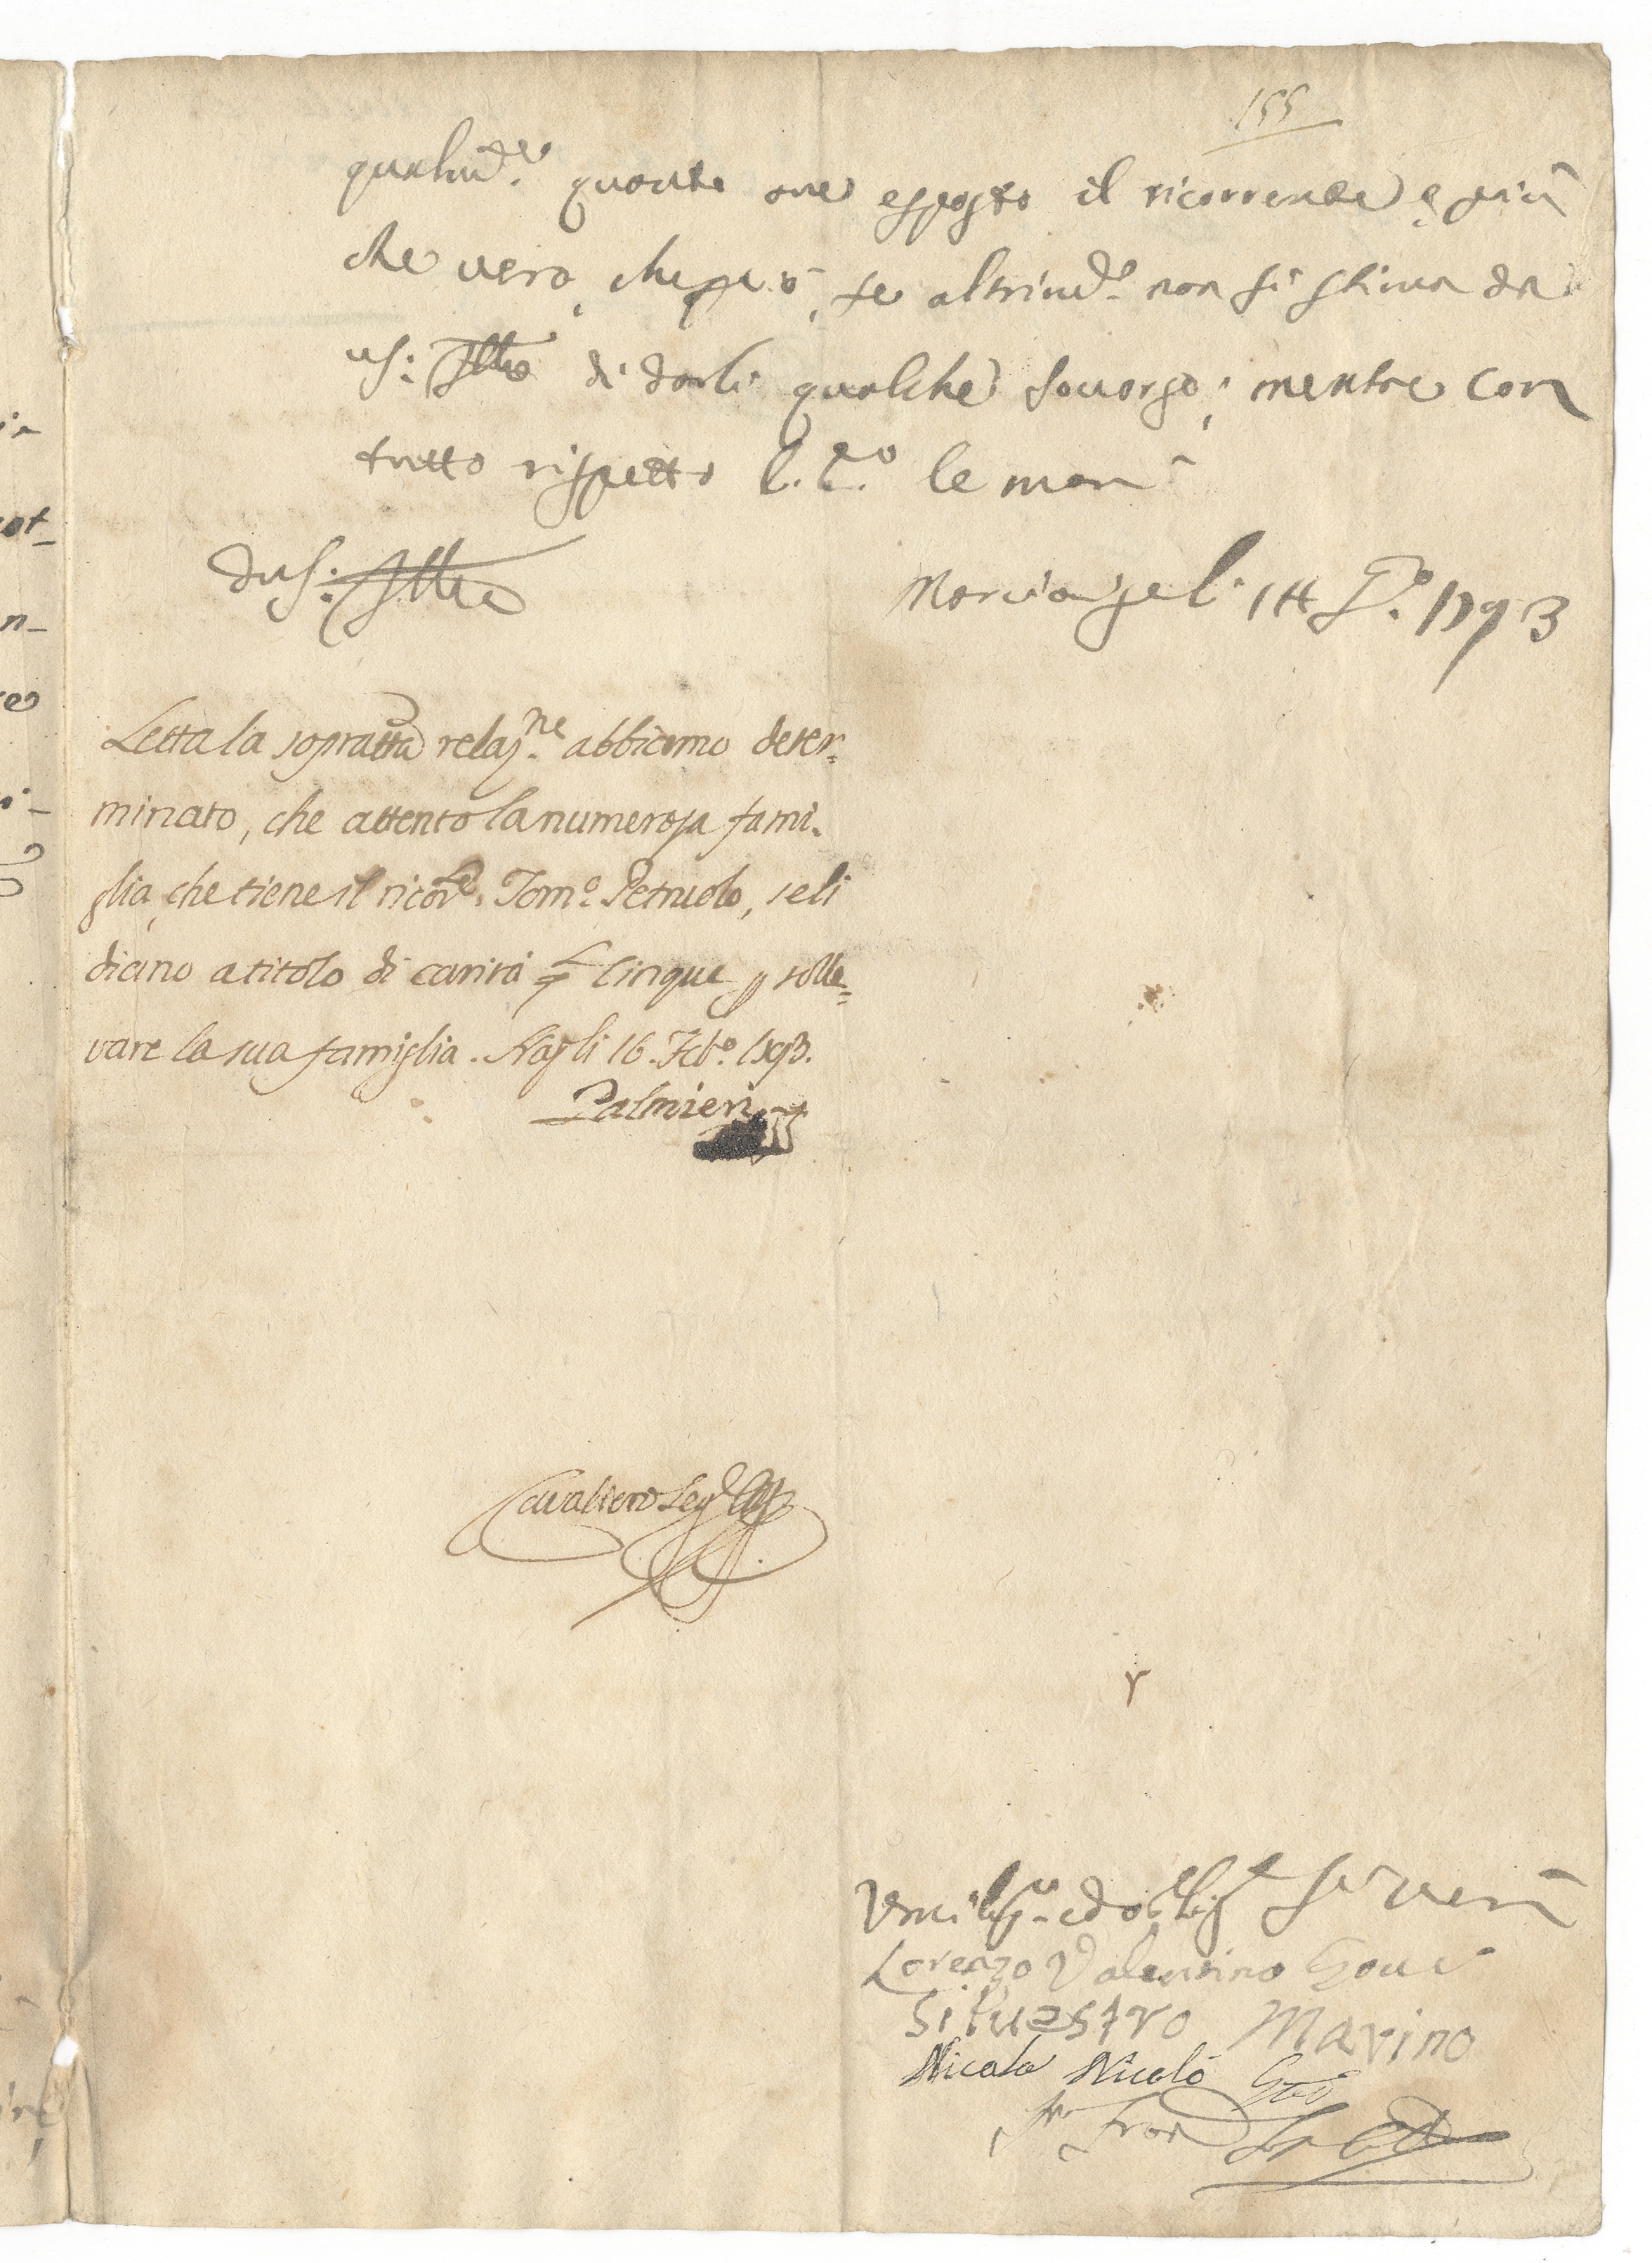 155
quanto ave esposto il ricorrente è più
che vero, che però, se altrim.te non si stima da
VS: Ill.ma di darli qualche soccorso; mentre con
tutto rispetto le mani
Di VS: Ill.ma
14 1793
Letta la sopratta relaz.ne abbiamo deter=
minato, che attento la numerosa fami.
glia, che tiene il ricor.te Tom.o Petruolo, se li
diano a titolo di carità cinque p solle=
vare la sua famiglia. Napli 16. Feb.o 1793.
Palmieri
Cavaliero Seg.
Umiliss.i ed obblig.i
Lorenzo Valentino
Silvestro Marino
Nicola Nicolò